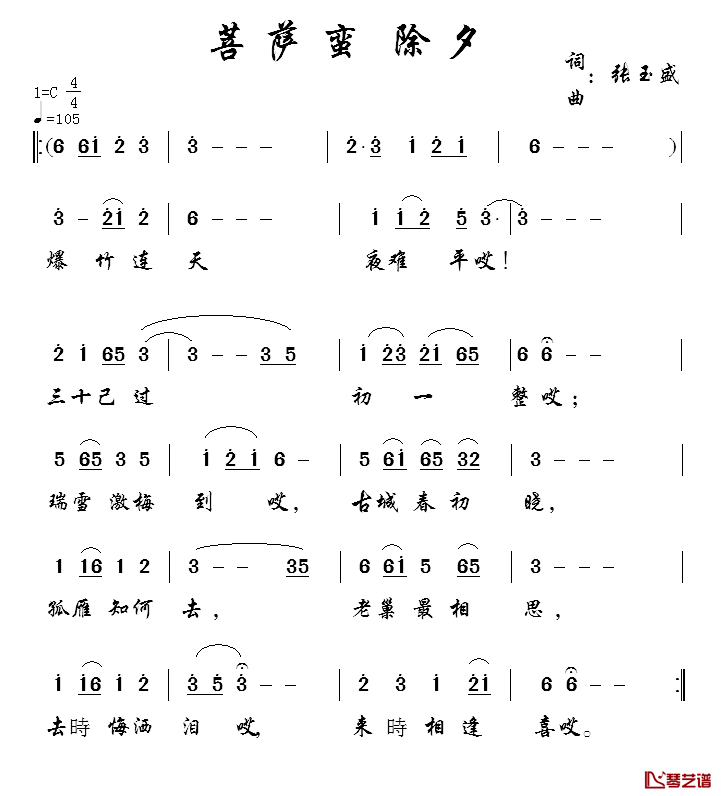 菩萨蛮 除夕
词
曲：张玉盛
1=C 4/4
♩=105
𝄆(6 6i 2 3 | 3 - - - | 2·3 i 2 i | 6 - - - )|
3 - 2i 2 | 6 - - - | i i 2 5 3· | 3 - - -
爆竹连天 夜难 平哎！
2 i 65 3 | 3 - - 3 5 | i 23 2i 65 | 6 6 - -
三十已过 初一 整哎；
5 65 3 5 | i 2 i 6 - | 5 6i 65 32 | 3 - - -
瑞雪激梅到 哎，古城春初 晓，
1 16 1 2 | 3 - - 35 | 6 6i 5 65 | 3 - - -
孤雁知何去，老巢最相 思，
i i6 i 2 | 3 5 3 - - | 2 3 i 2i | 6 6 - - :||
去時悔洒泪 哎，来時相逢 喜哎。
琴艺谱